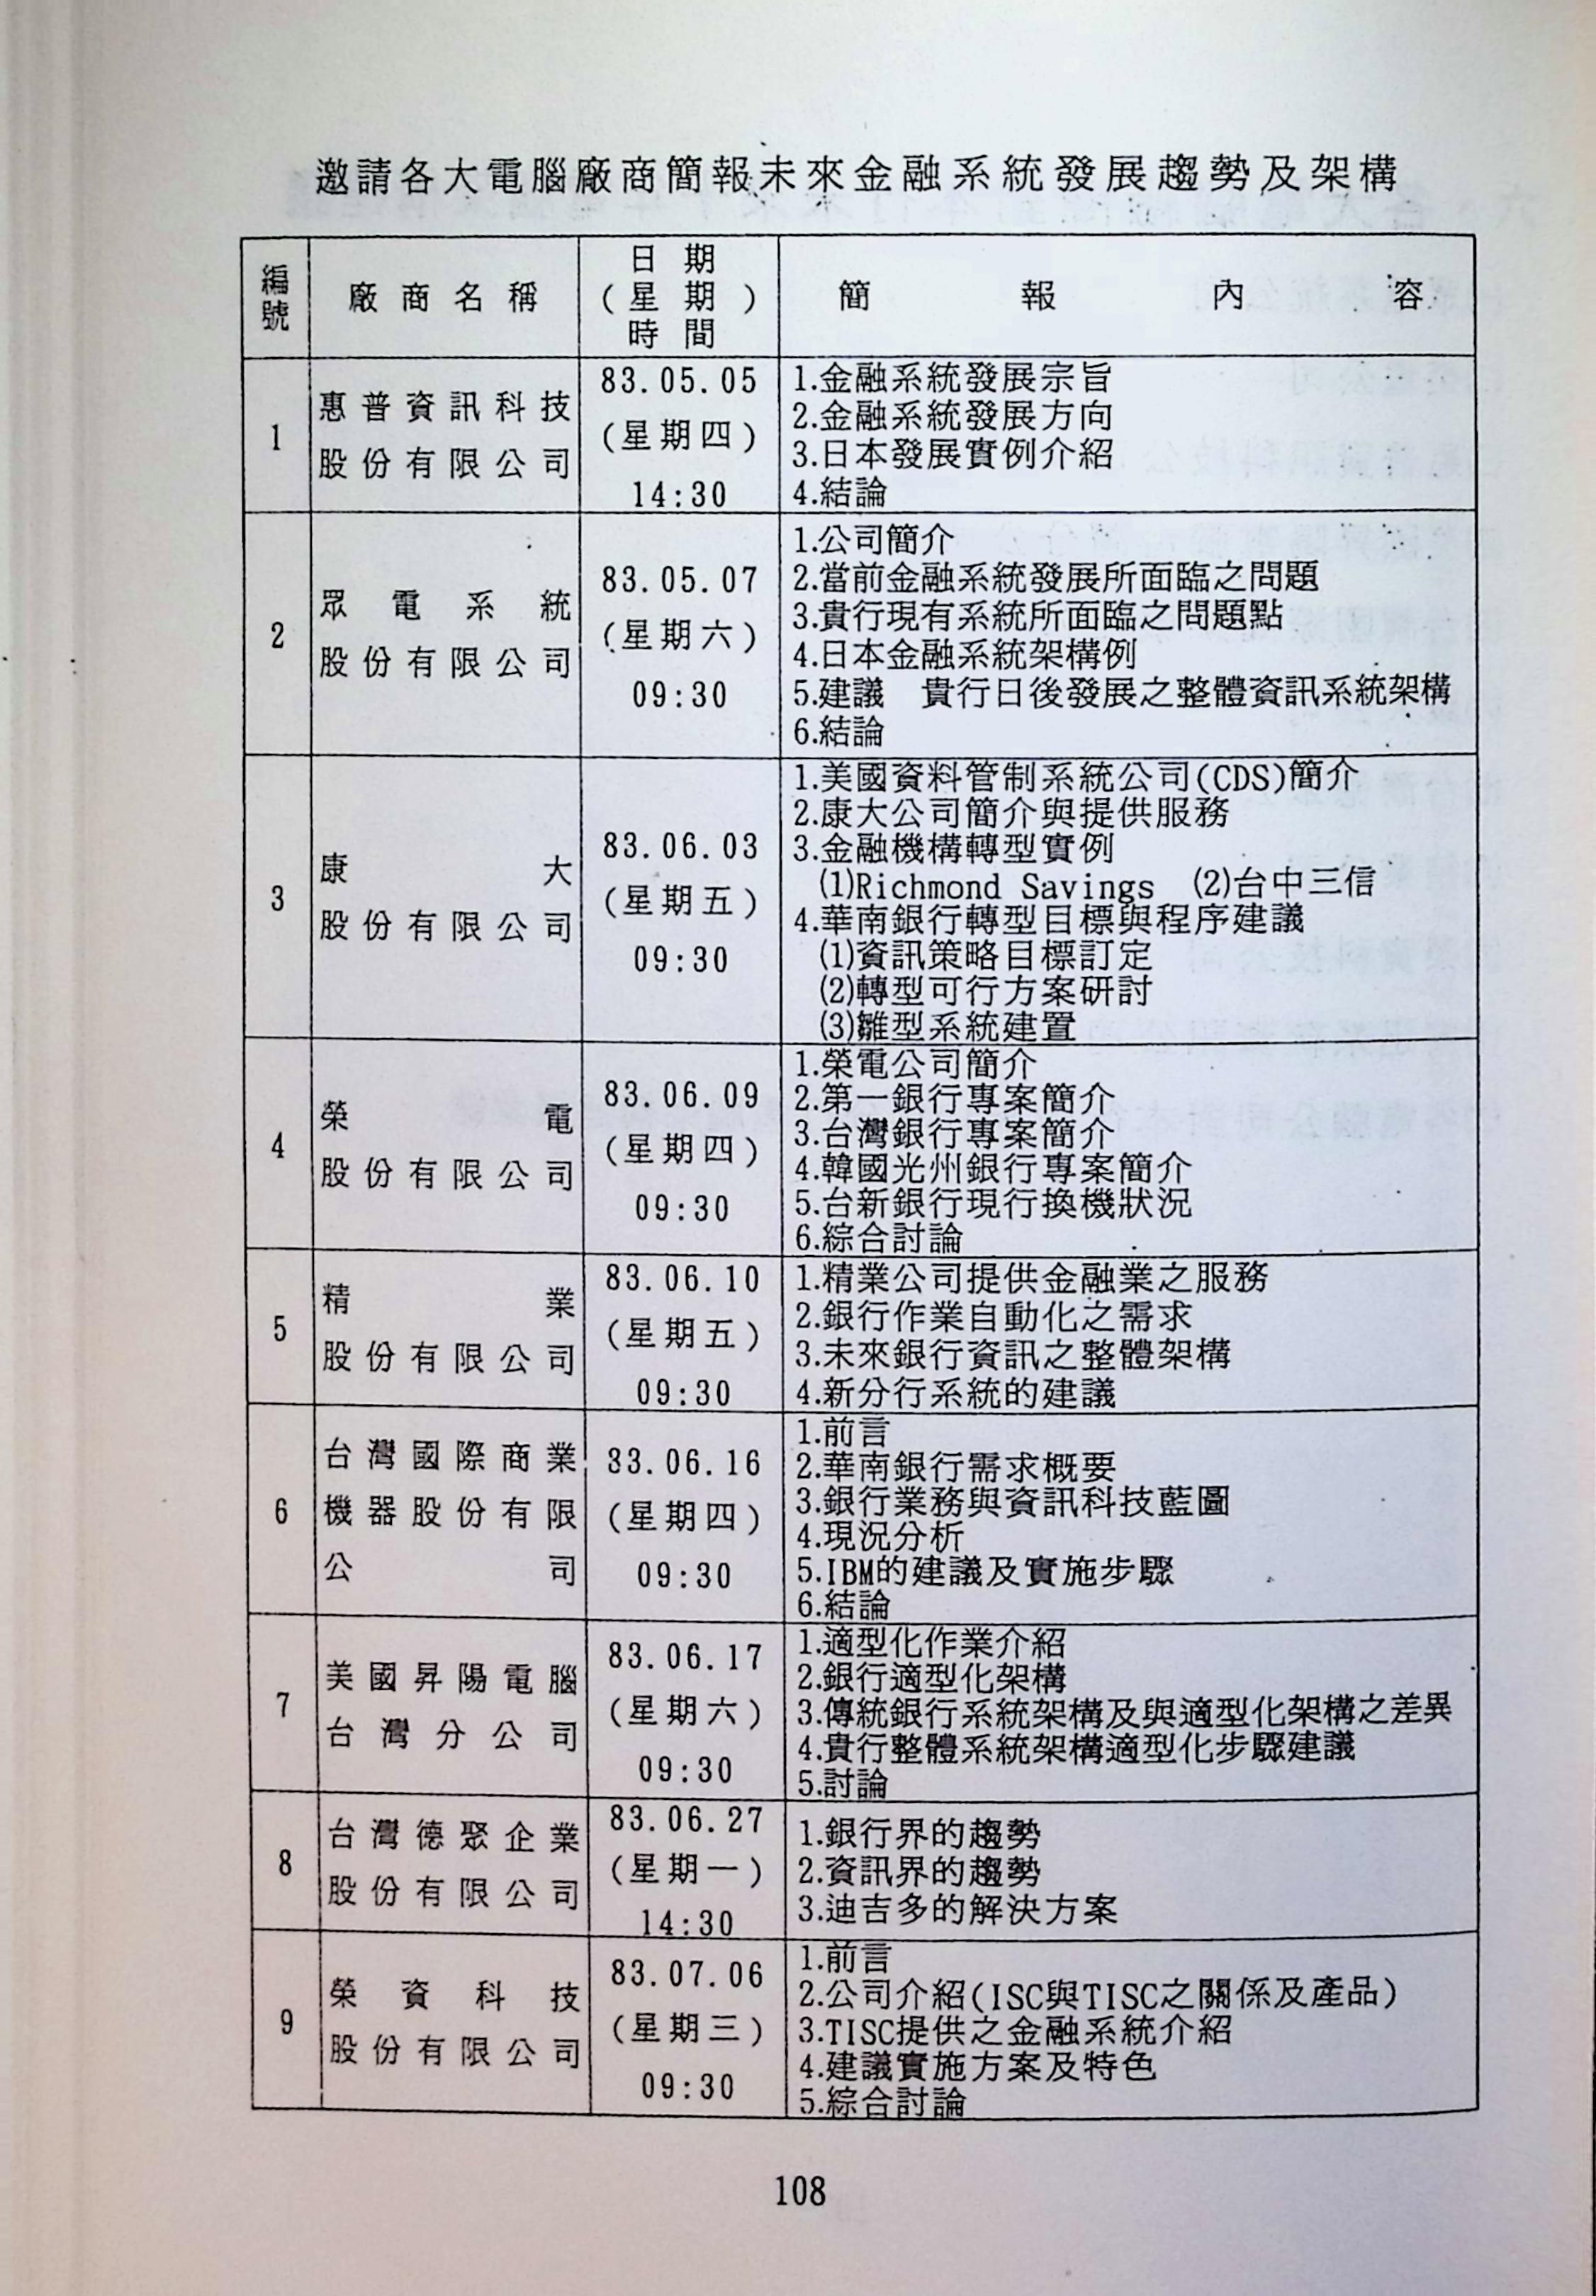 邀請各大電腦廠商簡報未來金融系統發展趨勢及架構
編號
廠商名稱
日期
(星期)
時間
簡報內容
1
惠普資訊科技
股份有限公司
83.05.05
(星期四)
14:30
1.金融系統發展宗旨
2.金融系統發展方向
3.日本發展實例介紹
4.結論
2
眾電系統
股份有限公司
83.05.07
(星期六)
09:30
1.公司簡介
2.當前金融系統發展所面臨之問題
3.貴行現有系統所面臨之問題點
4.日本金融系統架構例
5.建議 貴行日後發展之整體資訊系統架構
6.結論
3
康大
股份有限公司
83.06.03
(星期五)
09:30
1.美國資料管制系統公司(CDS)簡介
2.康大公司簡介與提供服務
3.金融機構轉型實例
(1)Richmond Savings (2)台中三信
4.華南銀行轉型目標與程序建議
(1)資訊策略目標訂定
(2)轉型可行方案研討
(3)雛型系統建置
4
榮電
股份有限公司
83.06.09
(星期四)
09:30
1.榮電公司簡介
2.第一銀行專案簡介
3.台灣銀行專案簡介
4.韓國光州銀行專案簡介
5.台新銀行現行換機狀況
6.綜合討論
5
精業
股份有限公司
83.06.10
(星期五)
09:30
1.精業公司提供金融業之服務
2.銀行作業自動化之需求
3.未來銀行資訊之整體架構
4.新分行系統的建議
6
台灣國際商業
機器股份有限
公司
83.06.16
(星期四)
09:30
1.前言
2.華南銀行需求概要
3.銀行業務與資訊科技藍圖
4.現況分析
5.IBM的建議及實施步驟
6.結論
7
美國昇陽電腦
台灣分公司
83.06.17
(星期六)
09:30
1.適型化作業介紹
2.銀行適型化架構
3.傳統銀行系統架構及與適型化架構之差異
4.貴行整體系統架構適型化步驟建議
5.討論
8
台灣德聚企業
股份有限公司
83.06.27
(星期一)
14:30
1.銀行界的趨勢
2.資訊界的趨勢
3.迪吉多的解決方案
9
榮資科技
股份有限公司
83.07.06
(星期三)
09:30
1.前言
2.公司介紹(ISC與TISC之關係及產品)
3.TISC提供之金融系統介紹
4.建議實施方案及特色
5.綜合討論
108